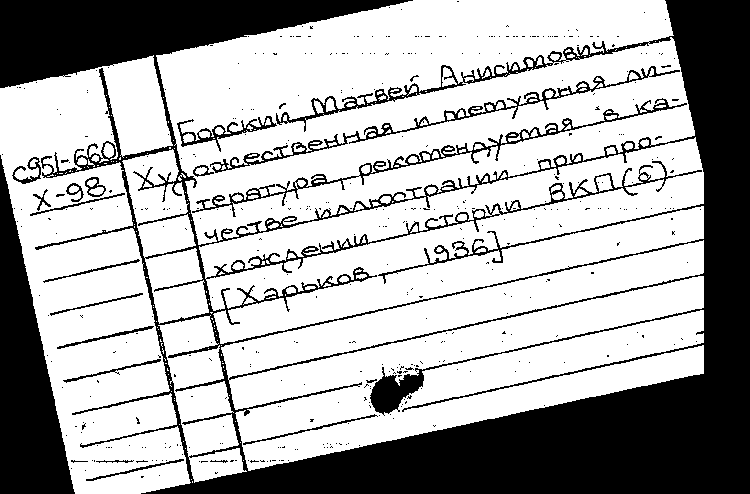 Борский, Матвей Анисимович.
с951-660
Х-98.
Художественная и мемуарная ли-
тература, рекомендуемая в ка-
честве иллюстрации при про-
хождении истории ВКП(б).
[Харьков, 1936]